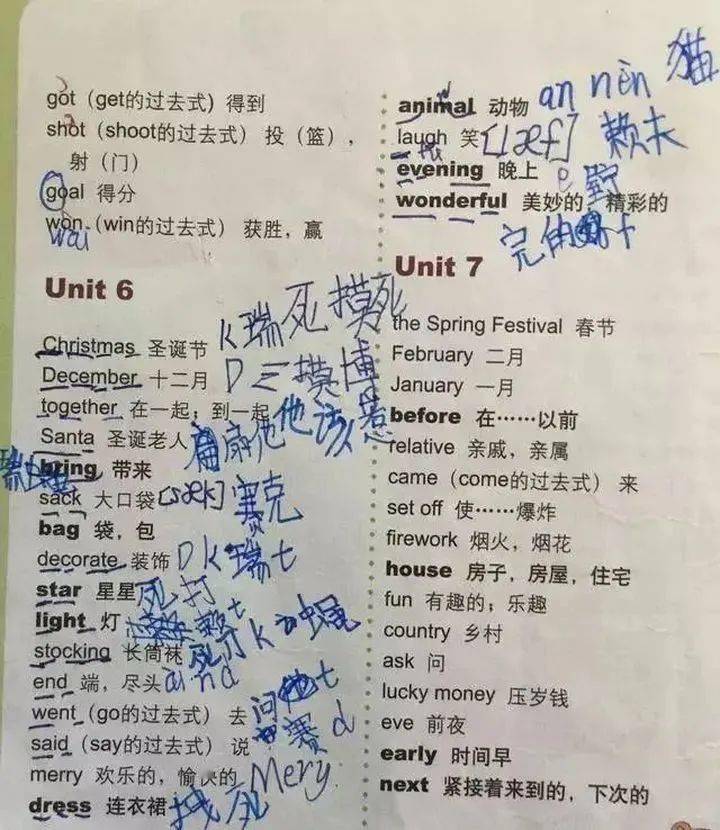 got（get的过去式）得到
shot（shoot的过去式）投（篮），
射（门）
goal 得分
won（win的过去式）获胜，赢
wai
Unit 6
Christmas 圣诞节 k瑞死摸死
December 十二月 D三摸博
together 在一起；到一起 他该惹
Santa 圣诞老人 扇他
bring 带来
sack 大口袋 [sæk] 赛克
bag 袋，包
decorate 装饰 Dk瑞t
star 星星 死打
light 灯 赖t
stocking 长筒袜 死打k
end 端，尽头 and
went（go的过去式）去 问t
said（say的过去式）说 赛d
merry 欢乐的，愉快的 Mery
dress 连衣裙 死
animal 动物 an nèn 猫
laugh 笑 [læf] 赖夫
evening 晚上 e
wonderful 美妙的，精彩的
完
Unit 7
the Spring Festival 春节
February 二月
January 一月
before 在……以前
relative 亲戚，亲属
came（come的过去式）来
set off 使……爆炸
firework 烟火，烟花
house 房子，房屋，住宅
fun 有趣的；乐趣
country 乡村
ask 问
lucky money 压岁钱
eve 前夜
early 时间早
next 紧接着来到的，下次的